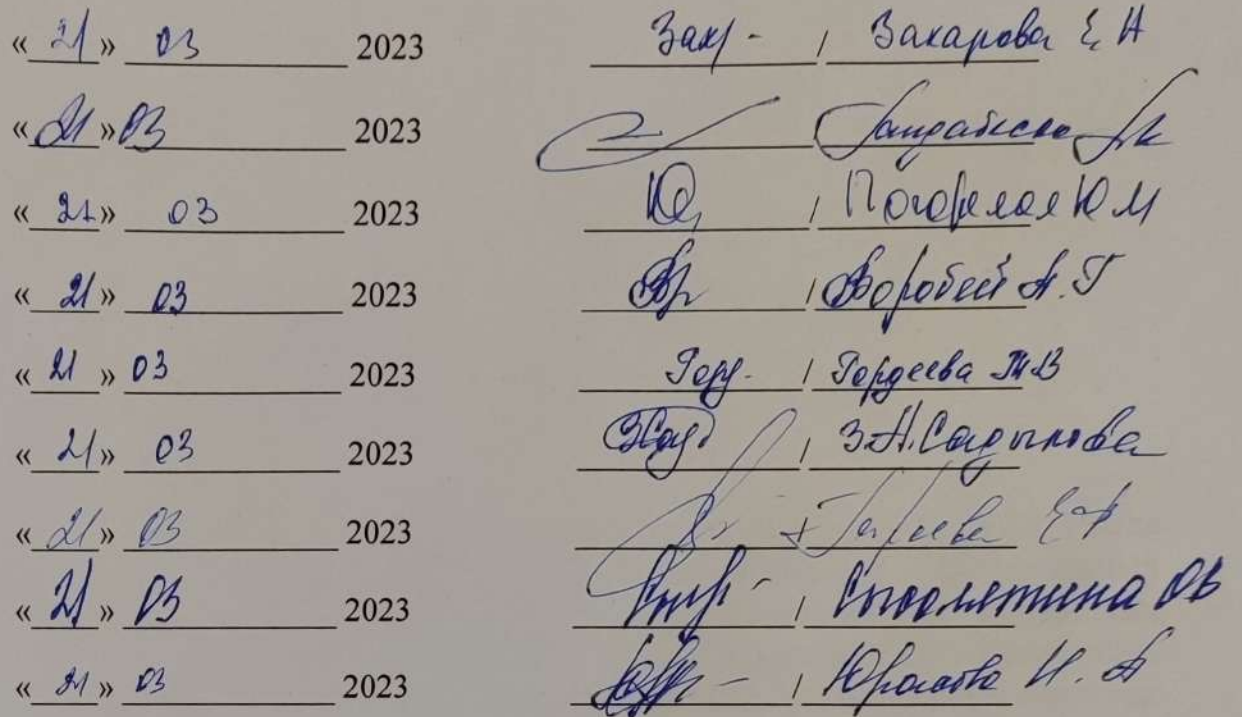 « 21 » 03 2023 Зах - / Захарова Е Н
« 21 » 03 2023
« 21 » 03 2023 / Погорелая Ю М
« 21 » 03 2023 Вр / Воробей А. Г
« 21 » 03 2023 Горд - / Гордеева Т В
« 21 » 03 2023 ЗСад / З.А. Садыкова
« 21 » 03 2023
« 21 » 03 2023 / ОВ
« 21 » 03 2023 - / Юрасова И. А